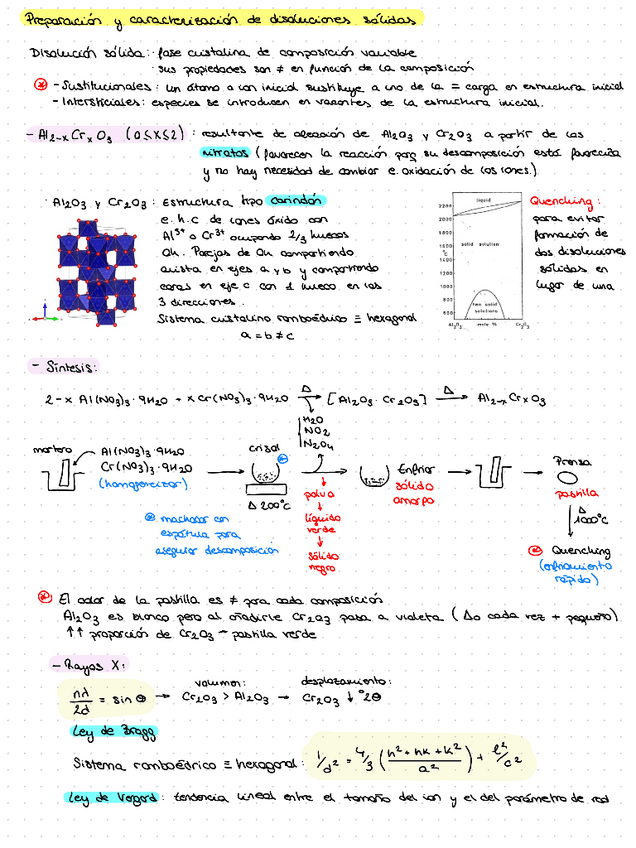 Preparación y caracterización de disoluciones sólidas
Disolución sólida: · fase cristalina de composición variable
· sus propiedades son ≠ en función de la composición
* - Sustitucionales: un átomo o ion inicial sustituye a uno de la = carga en estructura inicial
- Intersticiales: especies se introducen en vacantes de la estructura inicial.
- Al2-xCrxO3 (0≤x≤2): resultante de aleación de Al2O3 y Cr2O3 a partir de los
nitratos (favorecen la reacción porq su descomposición está favorecida
y no hay necesidad de cambiar e. oxidación de los iones.)
· Al2O3 y Cr2O3: Estructura tipo corindón
e.h.c de iones óxido con
Al3+ o Cr3+ ocupando 2/3 huecos
Oh. Parejas de Oh compartiendo
arista en ejes a y b y compartiendo
caras en eje c con 1 hueco en las
3 direcciones.
Sistema cristalino romboédrico ≡ hexagonal
a = b ≠ c
liquid
2200
2000
1800
°C
1600
1400
1200
1000
800
600
solid solution
two solid
solutions
Al2O3 mole % Cr2O3
Quenching:
para evitar
formación de
dos disoluciones
sólidas en
lugar de una
- Síntesis:
2-x Al(NO3)3·9H2O + x Cr(NO3)3·9H2O Δ→ [Al2O3·Cr2O3] Δ→ Al2-xCrxO3
H2O
NO2
N2O4
mortero
Al(NO3)3·9H2O
Cr(NO3)3·9H2O
(homogeneizar)
crisol
*
Δ 200°C
* machacar con
espátula para
asegurar descomposición
polvo
↓
líquido
verde
↓
sólido
negro
Enfriar
sólido
amorfo
Prensa
pastilla
Δ
1000°C
* Quenching
(enfriamiento
rápido)
* El color de la pastilla es ≠ para cada composición
Al2O3 es blanco pero al añadirle Cr2O3 pasa a violeta (Δo cada vez + pequeño)
↑↑ proporción de Cr2O3 → pastilla verde
- Rayos X:
nλ/2d = sin θ → volumen: Cr2O3 > Al2O3 → desplazamiento: Cr2O3 ↓ °2θ
Ley de Bragg
Sistema romboédrico ≡ hexagonal: 1/d2 = 4/3 (h2 + hk + k2 / a2) + l2/c2
Ley de Vegard: tendencia lineal entre el tamaño del ion y el del parámetro de red